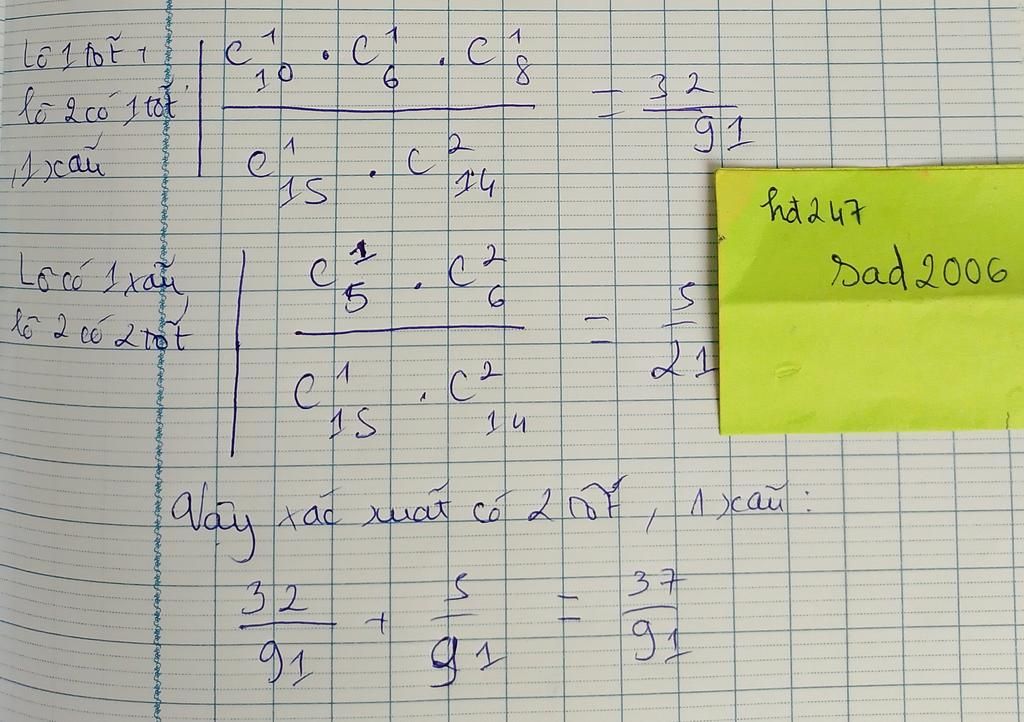 Lô 1 tốt,
lô 2 có 1 tốt
, 1 xấu
C¹₁₀ . C¹₆ . C¹₈ / C¹₁₅ . C²₁₄ = 32/91
hđ247
sad2006
Lô có 1 xấu,
lô 2 có 2 tốt
C¹₅ . C²₆ / C¹₁₅ . C²₁₄ = 5/21
Vậy xác xuất có 2 tốt, 1 xấu:
32/91 + 5/91 = 37/91